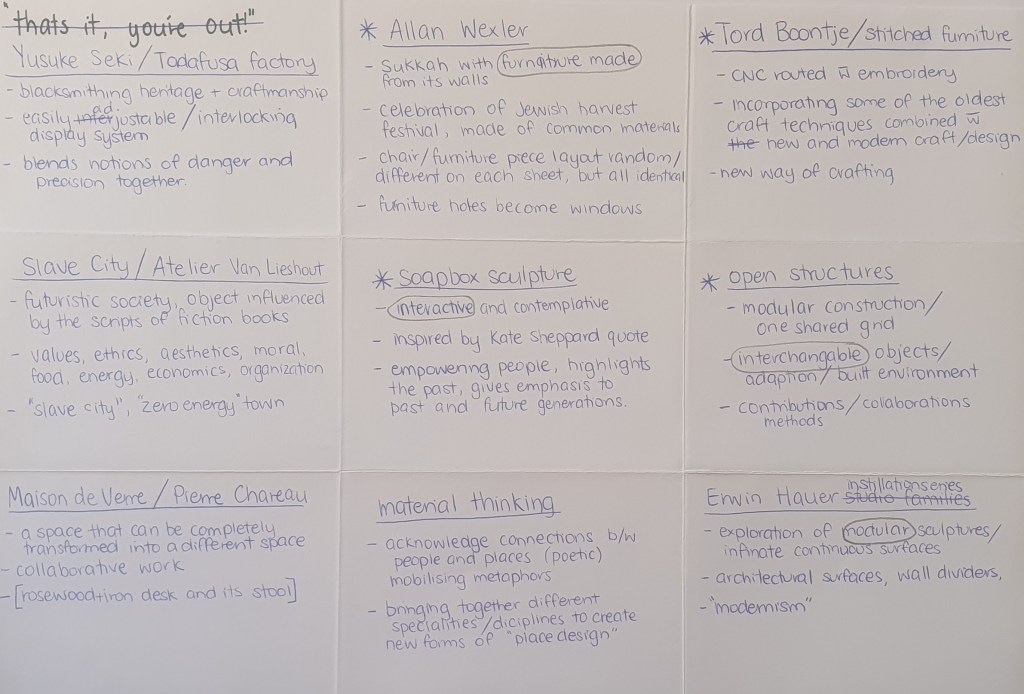 "thats it, you're out!"
Yusuke Seki / Tadafusa factory
- blacksmithing heritage + craftmanship
ad.
- easily infer justable / interlocking
display system
- blends notions of danger and
precision together.
* Allan Wexler
- Sukkah with furnature made
from its walls
- celebration of Jewish harvest
festival, made of common materials
- chair/furniture piece layout random/
different on each sheet, but all identical
- furniture holes become windows
* Tord Boontje/stitched furniture
- CNC routed w̄ embroidery
- incorporating some of the oldest
craft techniques combined w̄
the new and modern craft/design
- new way of crafting
Slave City / Atelier Van Lieshout
- futuristic society, object influenced
by the scripts of fiction books
- values, ethics, aesthetics, moral,
food, energy, economics, organization
- "slave city", "zero energy" town
* Soapbox sculpture
- interactive and contemplative
- inspired by Kate Sheppard quote
- empowering people, highlights
the past, gives emphasis to
past and future generations.
* open structures
- modular construction/
one shared grid
- interchangable objects/
adaption/built environment
- contributions/collaborations
methods
Maison de Verre / Pierre Chareau
- a space that can be completely
transformed into a different space
- collaborative work
- [rosewood+iron desk and its stool]
material thinking
- acknowledge connections b/w
people and places (poetic)
mobilising metaphors
- bringing together different
specialities/diciplines to create
new forms of "place design"
instillation series
Erwin Hauer studio families
- exploration of modular sculptures/
infinate continuous surfaces
- architectural surfaces, wall dividers,
- "modernism"